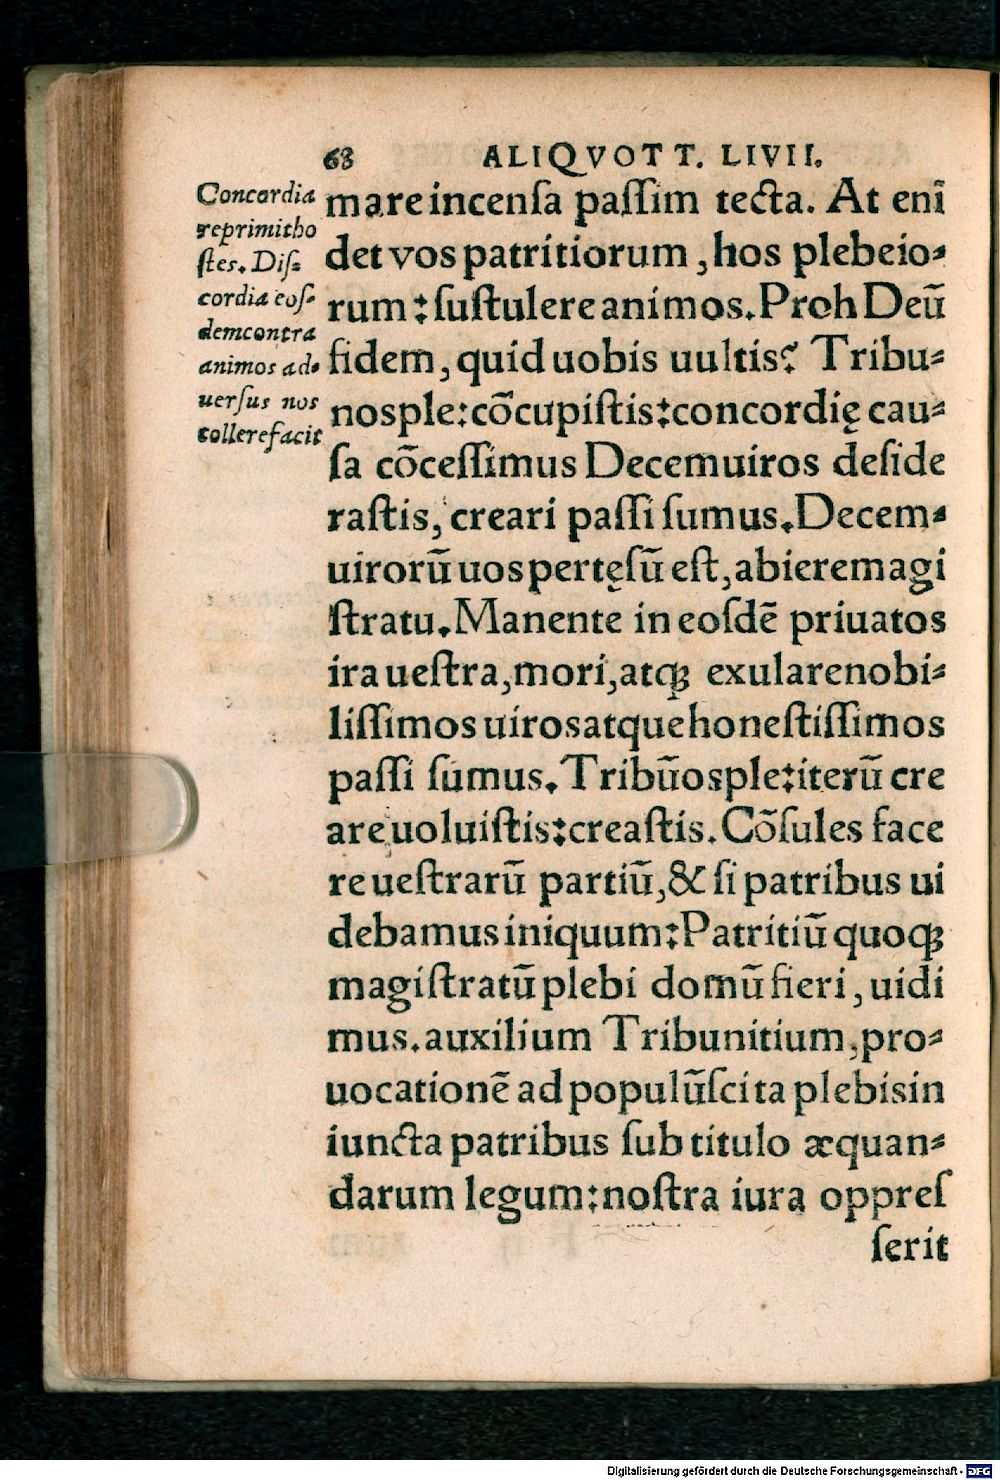 68 ALIQVOT T. LIVII.
Concordia
reprimit ho
ſtes. Diſ⸗
cordia eoſ⸗
dem contra
animos ad⸗
uerſus nos
tollere facit
mare incenſa paſſim tecta. At enĩ
det vos patritiorum, hos plebeio⸗
rum: ſuſtulere animos. Proh Deũ
fidem, quid uobis uultis? Tribu⸗
nos ple: cõcupiſtis: concordię cau⸗
ſa cõceſſimus Decemuiros deſide
raſtis, creari paſſi ſumus. Decem⸗
uirorũ uos pertęſũ eſt, abiere magi
ſtratu. Manente in eoſdẽ priuatos
ira ueſtra, mori, atq́ꝫ exulare nobi⸗
liſſimos uiros atque honeſtiſſimos
paſſi ſumus. Tribũos ple: iterũ cre
are uoluiſtis: creaſtis. Cõſules face
re ueſtrarũ partiũ, & ſi patribus ui
debamus iniquum: Patritiũ quoqꝫ
magiſtratũ plebi domũ fieri, uidi
mus. auxilium Tribunitium, pro⸗
uocationẽ ad populũ ſcita plebis in
iuncta patribus ſub titulo æquan⸗
darum legum: noſtra iura oppreſ
ſerit
Digitalisierung gefördert durch die Deutsche Forschungsgemeinschaft - DFG